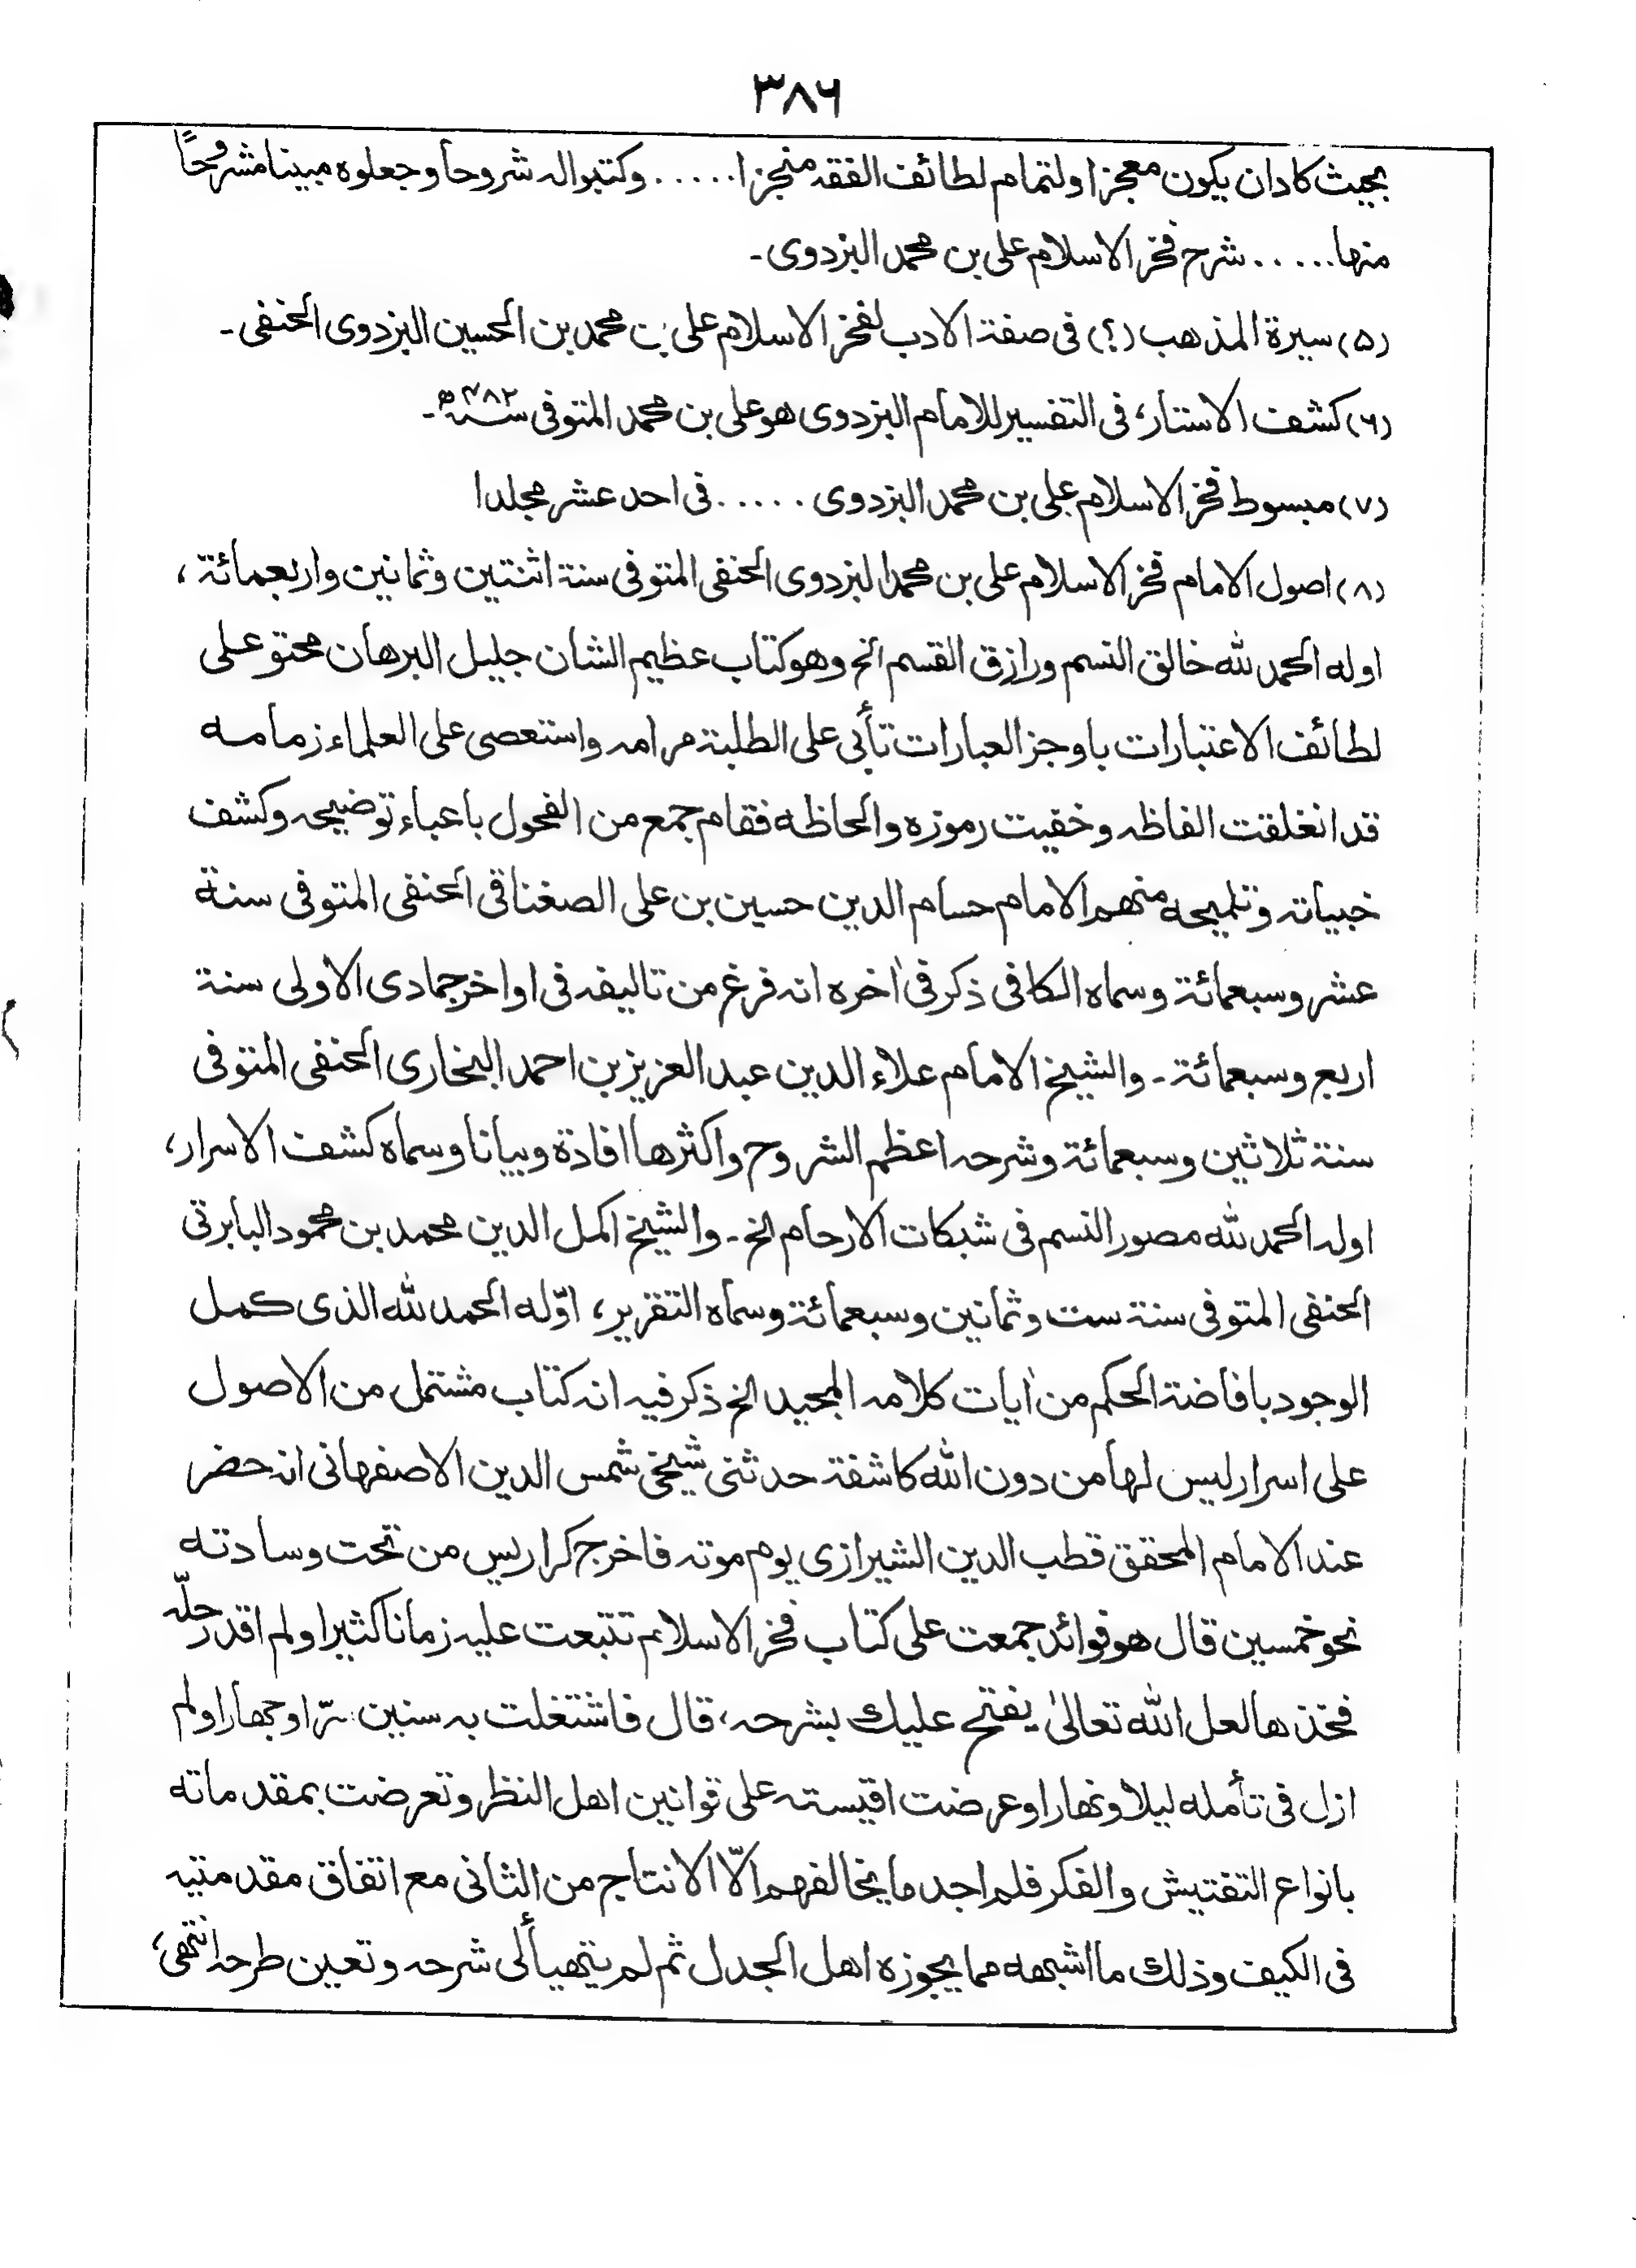 ٣٨٦
بحيث كادان يكون معجزا ولتمام لطائف الفقه منجزا..... وكتبواله شروحاً وجعلوه مبينا مشروحًا
منها..... شرح فخر الاسلام على بن محمد البزدوى۔
(۵) سيرة المذهب (؟) فى صفة الادب لفخر الاسلام على بن محمد بن الحسين البزدوى الحنفى۔
(٦) كشف الاستار، فى التفسير للامام البزدوى هو على بن محمد المتوفى سنة ٤٨٢ھ۔
(٧) مبسوط فخر الاسلام على بن محمد البزدوى ..... فى احد عشر مجلدا
(٨) اصول الامام فخر الاسلام على بن محمد البزدوى الحنفى المتوفى سنة اثنتين وثمانين واربعمائة،
اوله الحمد لله خالق النسم ورازق القسم الخ وهو كتاب عظيم الشان جليل البرهان محتو على
لطائف الاعتبارات باوجز العبارات تأبى على الطلبة مرامه واستعصى على العلماء زمامه
قد انغلقت الفاظه وخفيت رموزه والحاظه فقام جمع من الفحول باعباء توضيحه وكشف
خبياته وتلميحه منهم الامام حسام الدين حسين بن على الصغناقى الحنفى المتوفى سنة
عشر وسبعمائة وسماه الكافى ذكر فى اٰخره انه فرغ من تاليفه فى اواخر جمادى الاولى سنة
اربع وسبعمائة۔ والشيخ الامام علاء الدين عبد العزيز بن احمد البخارى الحنفى المتوفى
سنة ثلاثين وسبعمائة وشرحه اعظم الشروح واكثرها افادة وبيانا وسماه كشف الاسرار،
اوله الحمد لله مصور النسم فى شبكات الارحام الخ۔ والشيخ اكمل الدين محمد بن محمود البابرتى
الحنفى المتوفى سنة ست وثمانين وسبعمائة وسماه التقرير، اوّله الحمد لله الذى كمل
الوجود بافاضة الحكم من اٰيات كلامه المجيد الخ ذكر فيه انه كتاب مشتمل من الاصول
على اسرار ليس لها من دون الله كاشفة حدثنى شيخى شمس الدين الاصفهانى انه حضر
عند الامام المحقق قطب الدين الشيرازى يوم موته فاخرج كراريس من تحت وسادته
نحو خمسين قال هو فوائد جمعت على كتاب فخر الاسلام تتبعت عليه زمانا كثيرا ولم اقدر حلّه
فخذها لعل الله تعالىٰ يفتح عليك بشرحه، قال فاشتغلت به سنين سرّا وجهارا ولم
ازل فى تأمله ليلا ونهارا وعرضت اقيسته على قوانين اهل النظر وتعرضت بمقدماته
بانواع التفتيش والفكر فلم اجد ما يخالفهم الّا الانتاج من الثانى مع اتفاق مقدمتيه
فى الكيف وذلك ما اشبهه مما يجوزه اهل الجدل ثم لم يتهيأ لى شرحه وتعين طرحه انتهى،